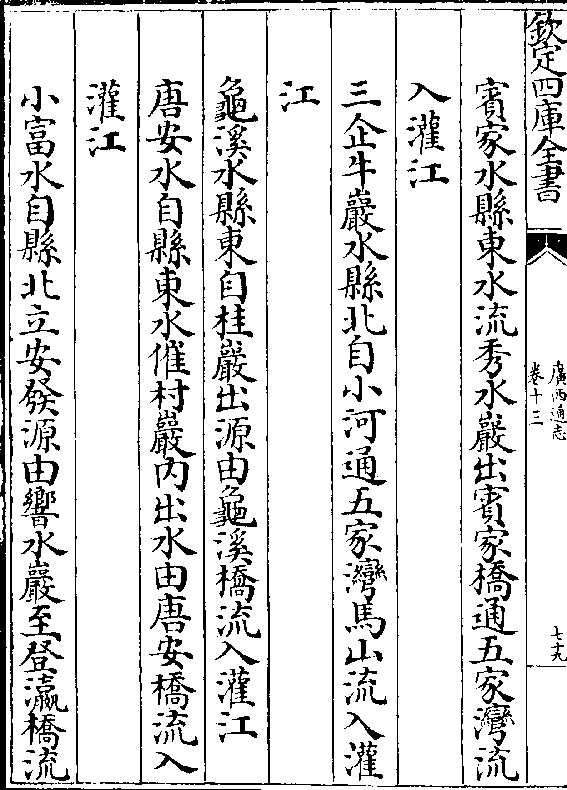 欽定四庫全書
廣西通志
卷十三
七十九
賔家水縣東水流秀水巖出賔家橋通五家灣流
入灌江
三企牛巖水縣北自小河通五家灣馬山流入灌
江
龜溪水縣東自桂巖出源由龜溪橋流入灌江
唐安水自縣東水傕村巖內出水由唐安橋流入
灌江
小富水自縣北立安發源由響水巖至登瀛橋流